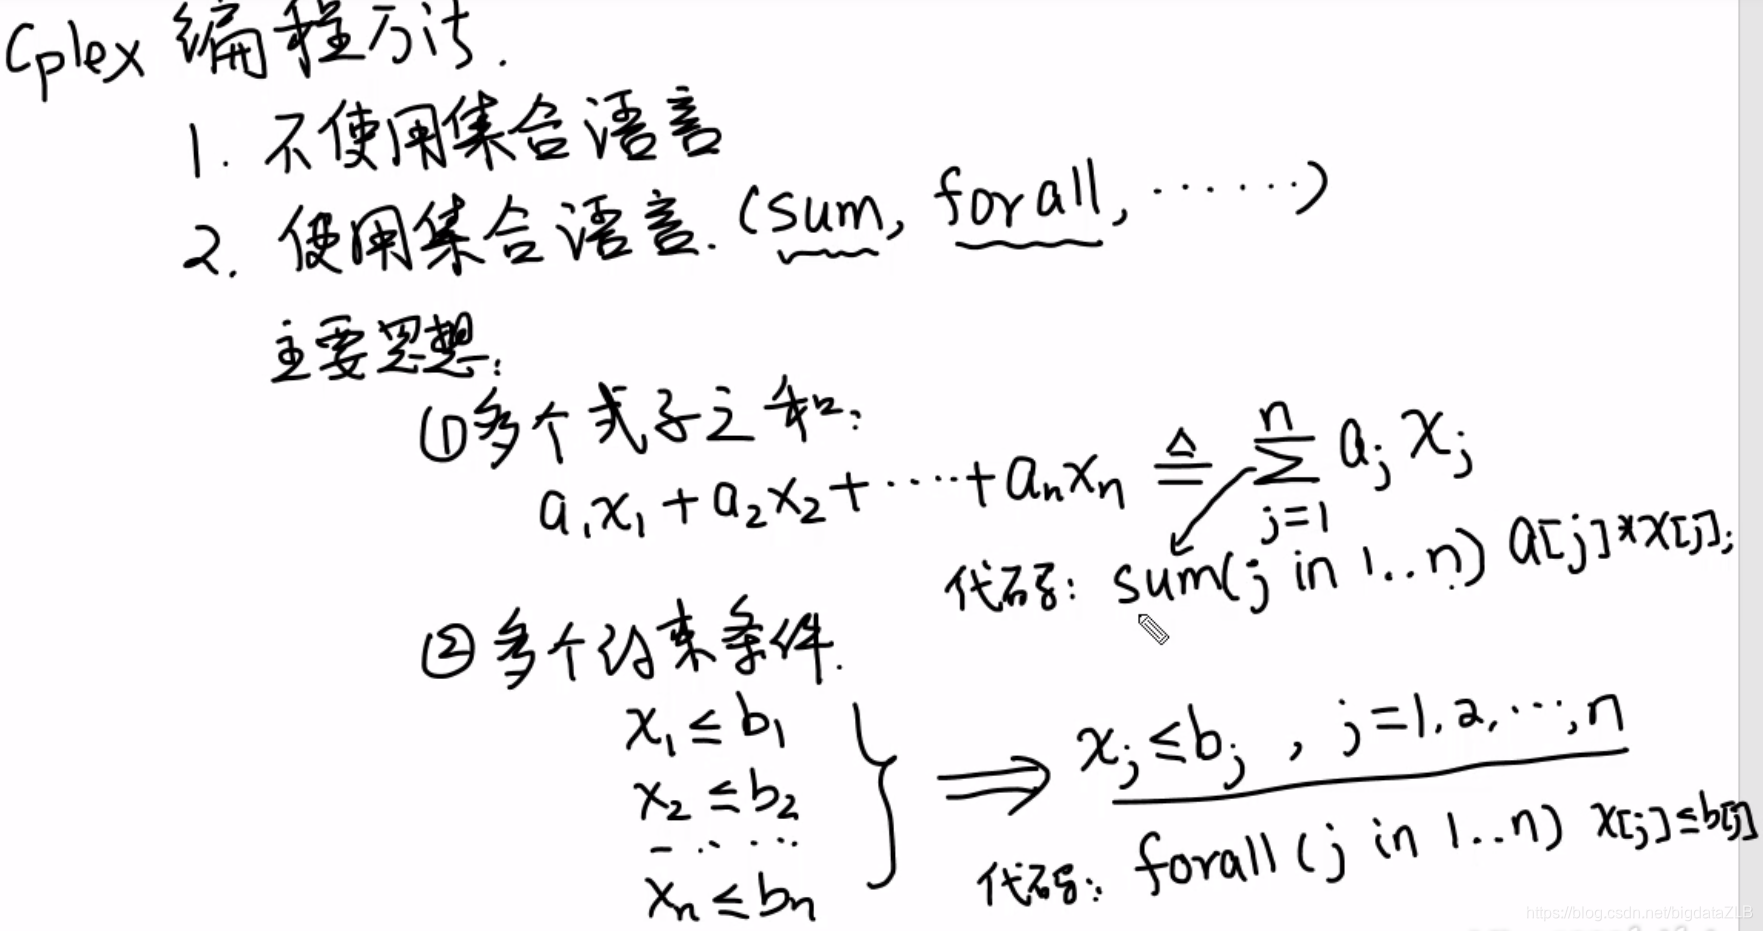 Cplex 编程方法.
1. 不使用集合语言
2. 使用集合语言. (sum, forall, ······)
主要思想:
①多个式子之和:
a₁x₁ + a₂x₂ + ····· + aₙxₙ ≜ ∑ⁿⱼ₌₁ aⱼ xⱼ
代码: sum(j in 1..n) a[j]*x[j];
②多个约束条件.
x₁ ≤ b₁
x₂ ≤ b₂
- · · · ·
xₙ ≤ bₙ
⟹ xⱼ ≤ bⱼ , j=1,2,···,n
代码: forall (j in 1..n) x[j]≤b[j]
https://blog.csdn.net/bigdataZLB